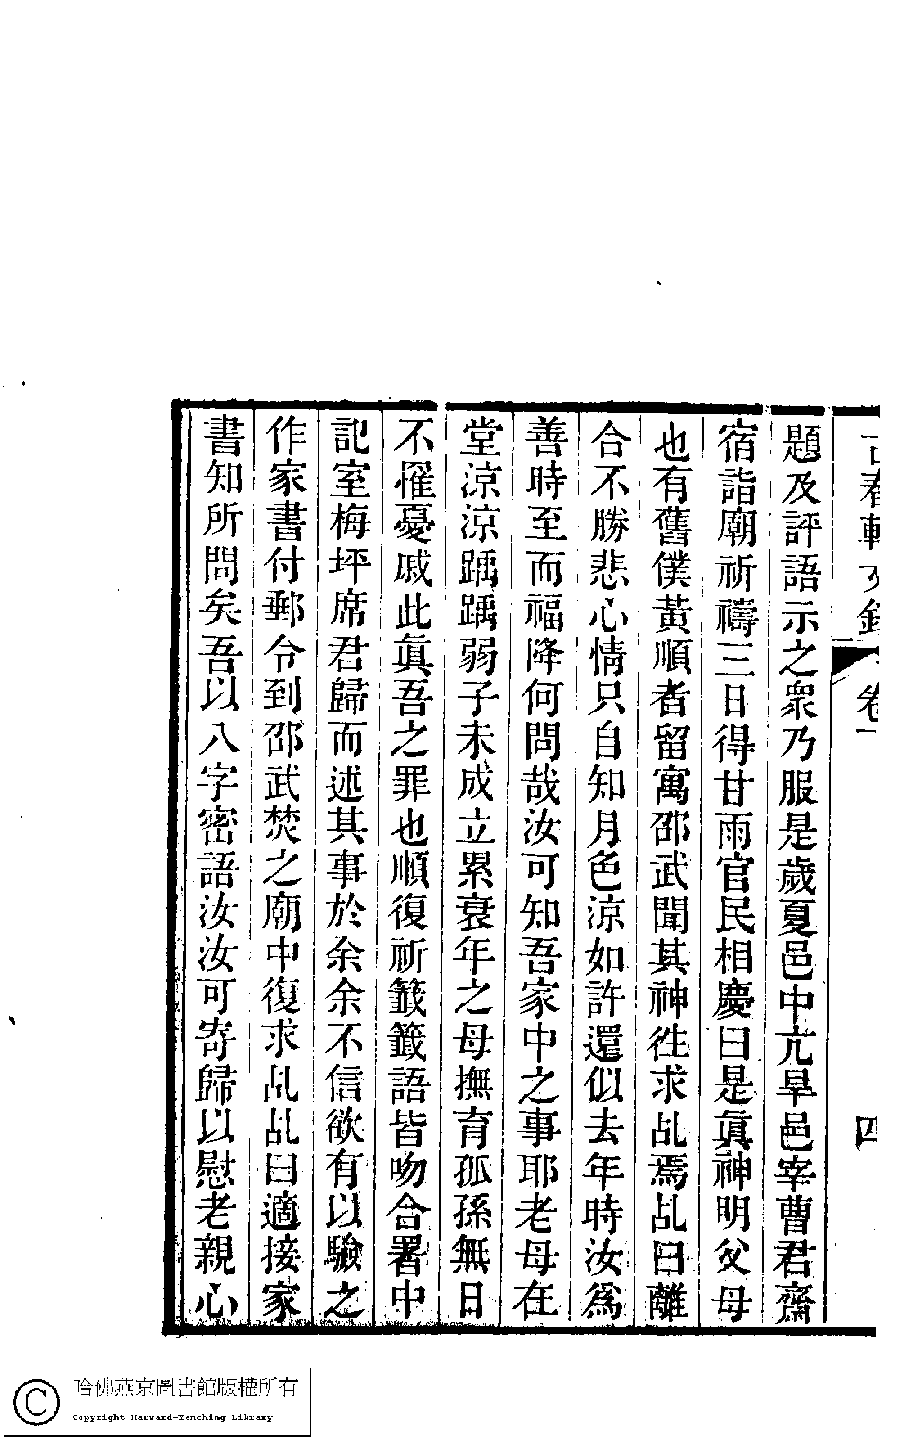 古春軒文鈔 卷一 四
題及評語示之衆乃服是歲夏邑中亢旱邑宰曹君齋
宿詣廟祈禱三日得甘雨官民相慶曰是眞神明父母
也有舊僕黃順者留寓邵武聞其神徃求乩焉乩曰離
合不勝悲心情只自知月色涼如許還似去年時汝爲
善時至而福降何問哉汝可知吾家中之事耶老母在
堂涼涼踽踽弱子未成立累衰年之母撫育孤孫無日
不罹憂戚此眞吾之罪也順復祈籤籤語皆吻合署中
記室梅坪席君歸而述其事於余余不信欲有以驗之
作家書付郵令到邵武焚之廟中復求乩乩曰適接家
書知所問矣吾以八字密語汝汝可寄歸以慰老親心
哈佛燕京圖書館版權所有
Copyright Harvard-Yenching Library